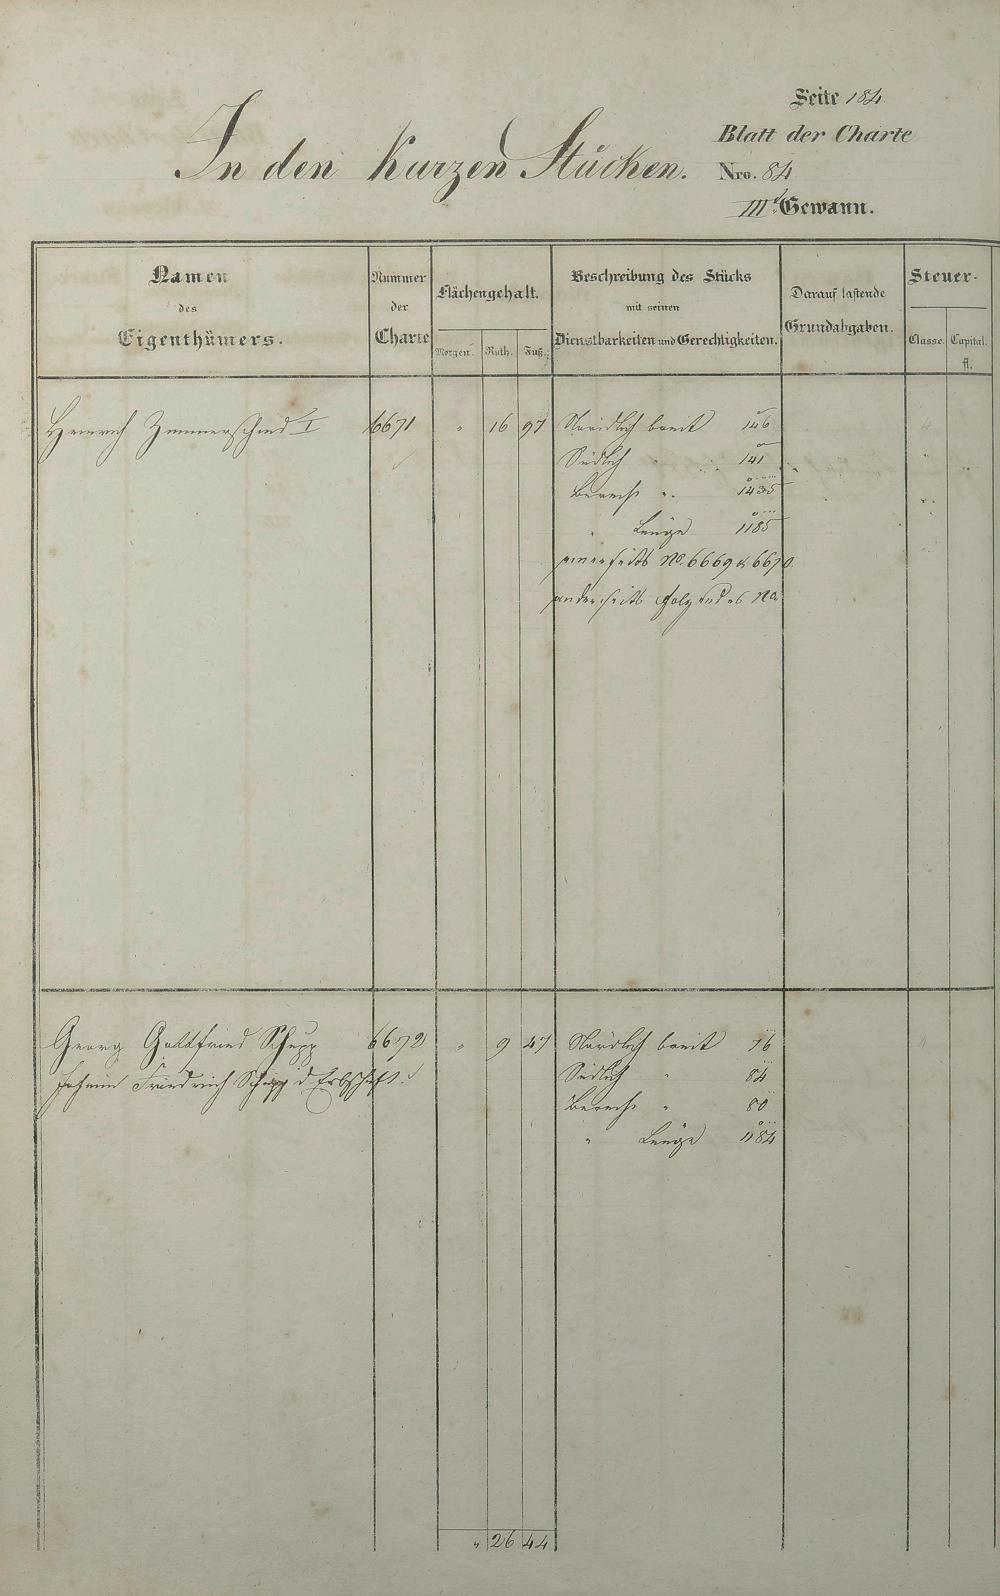 Seite 184
Blatt der Charte
In den Kurzen Stücken.
Nro. 84
III.t Gewann.
Namen
des
Eigenthümers.
Nummer
der
Charte
Flächengehalt.
Morgen. Ruth. Fuß.
Beschreibung des Stücks
mit seinen
Dienstbarkeiten und Gerechtigkeiten.
Darauf lastende
Grundabgaben.
Steuer-
Classe. Capital.
fl.
Heinrich Zimmerschied I 6671 " 16 97 Nördlich breit 146
Südlich " 141
Berechn. " 1435
" Länge 1185
einerseits No. 6669 & 6670.
anderseits folgendes No.
Georg Gottfried Schupp 6672 " 9 47 Nördlich breit 76
Friedrich Schupp d. Erbschaft. Südlich " 84
Berechn. " 80
" Länge 1184
" 26 44